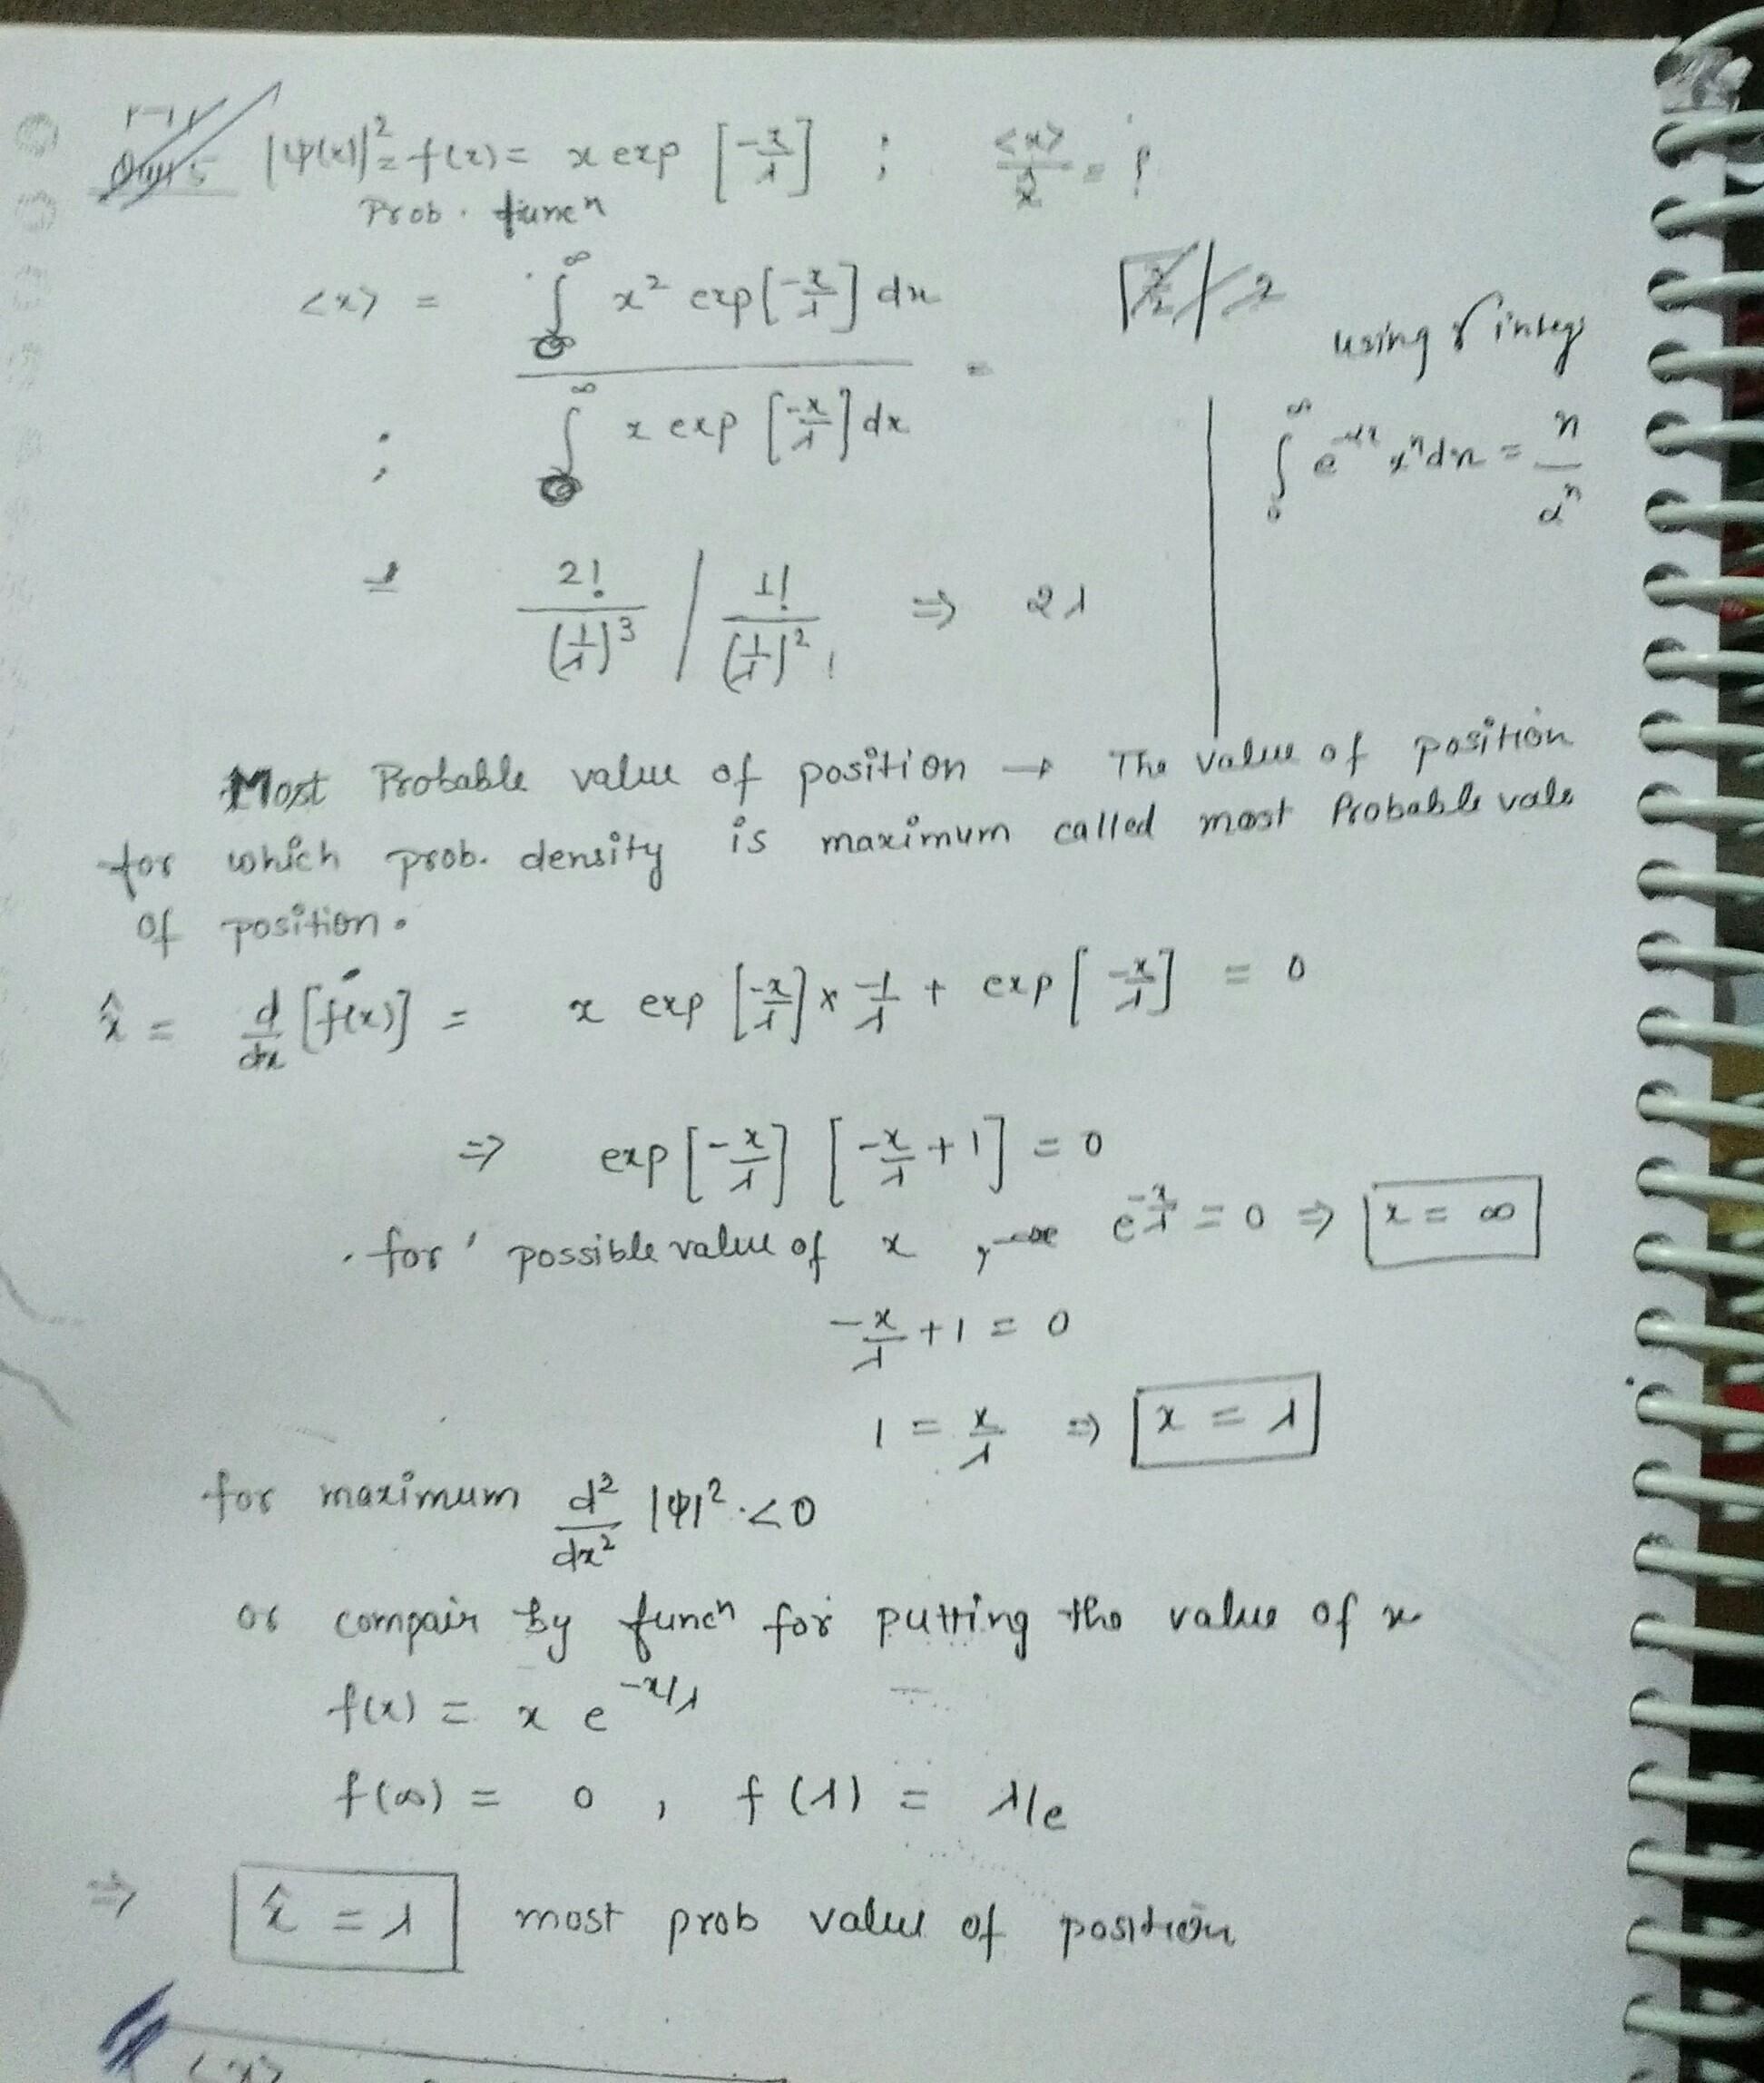 Ques 5 |ψ(x)|² = f(x) = x exp [-x/λ] ; <x>/x̂ = ?
Prob. funcⁿ
<x> = ∫₀^∞ x² exp[-x/λ] dx / ∫₀^∞ x exp [-x/λ] dx =
using γ integ
∫₀^∞ e^-αx xⁿ dx = n / αⁿ
= 2!/(1/λ)³ / 1!/(1/λ)² ⇒ 2λ
Most Probable value of position → The value of position
for which prob. density is maximum called most Probable vale
of position.
x̂ = d/dx [f(x)] = x exp [-x/λ] × -1/λ + exp [-x/λ] = 0
⇒ exp [-x/λ] [-x/λ + 1] = 0
for possible value of x , e^-x/λ = 0 ⇒ x = ∞
-x/λ + 1 = 0
1 = x/λ ⇒ x = λ
for maximum d²/dx² |ψ|² < 0
or compair by funcⁿ for putting the value of x
f(x) = x e^-x/λ
f(∞) = 0 , f(λ) = λ/e
⇒ x̂ = λ most prob value of position
<x>